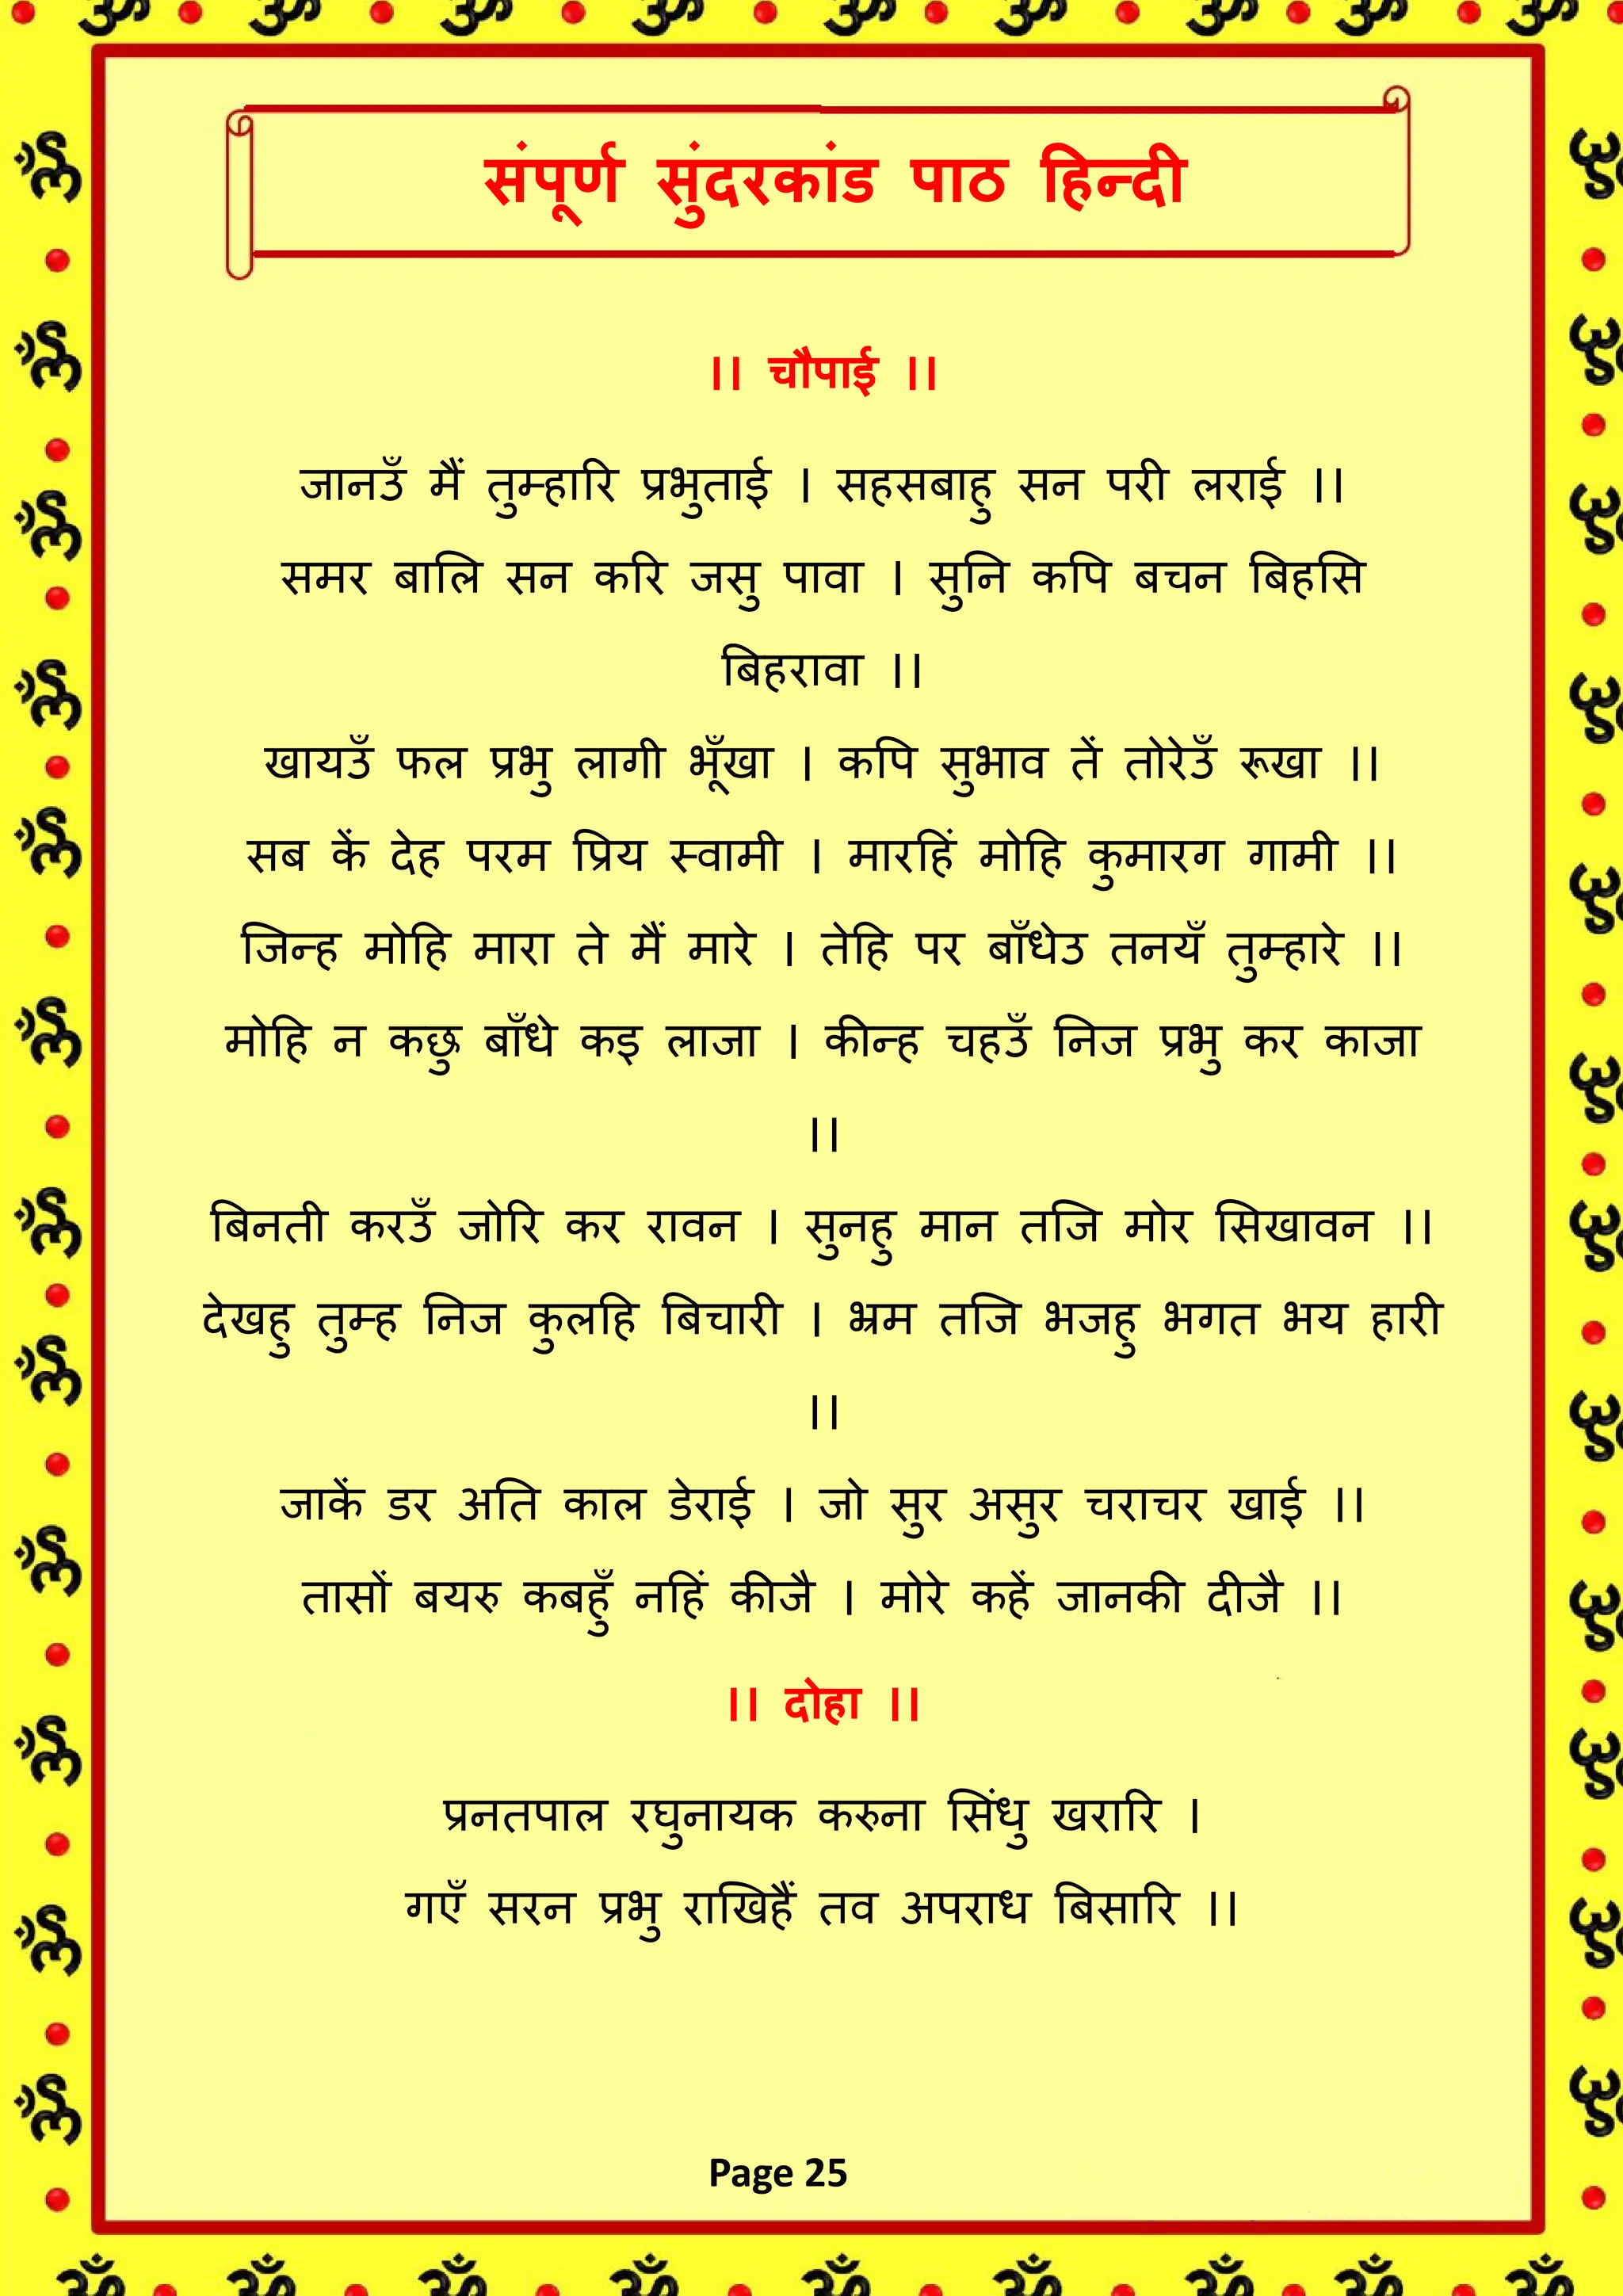 संपूर्ण सुंदरकांड पाठ हिन्दी
।। चौपाई ।।
जानउँ मैं तुम्हारि प्रभुताई । सहसबाहु सन परी लराई ।।
समर बालि सन करि जसु पावा । सुनि कपि बचन बिहसि
बिहरावा ।।
खायउँ फल प्रभु लागी भूँखा । कपि सुभाव तें तोरेउँ रूखा ।।
सब कें देह परम प्रिय स्वामी । मारहिं मोहि कुमारग गामी ।।
जिन्ह मोहि मारा ते मैं मारे । तेहि पर बाँधेउ तनयँ तुम्हारे ।।
मोहि न कछु बाँधे कइ लाजा । कीन्ह चहउँ निज प्रभु कर काजा
।।
बिनती करउँ जोरि कर रावन । सुनहु मान तजि मोर सिखावन ।।
देखहु तुम्ह निज कुलहि बिचारी । भ्रम तजि भजहु भगत भय हारी
।।
जाकें डर अति काल डेराई । जो सुर असुर चराचर खाई ।।
तासों बयरु कबहुँ नहिं कीजै । मोरे कहें जानकी दीजै ।।
।। दोहा ।।
प्रनतपाल रघुनायक करुना सिंधु खरारि ।
गएँ सरन प्रभु राखिहैं तव अपराध बिसारि ।।
Page 25